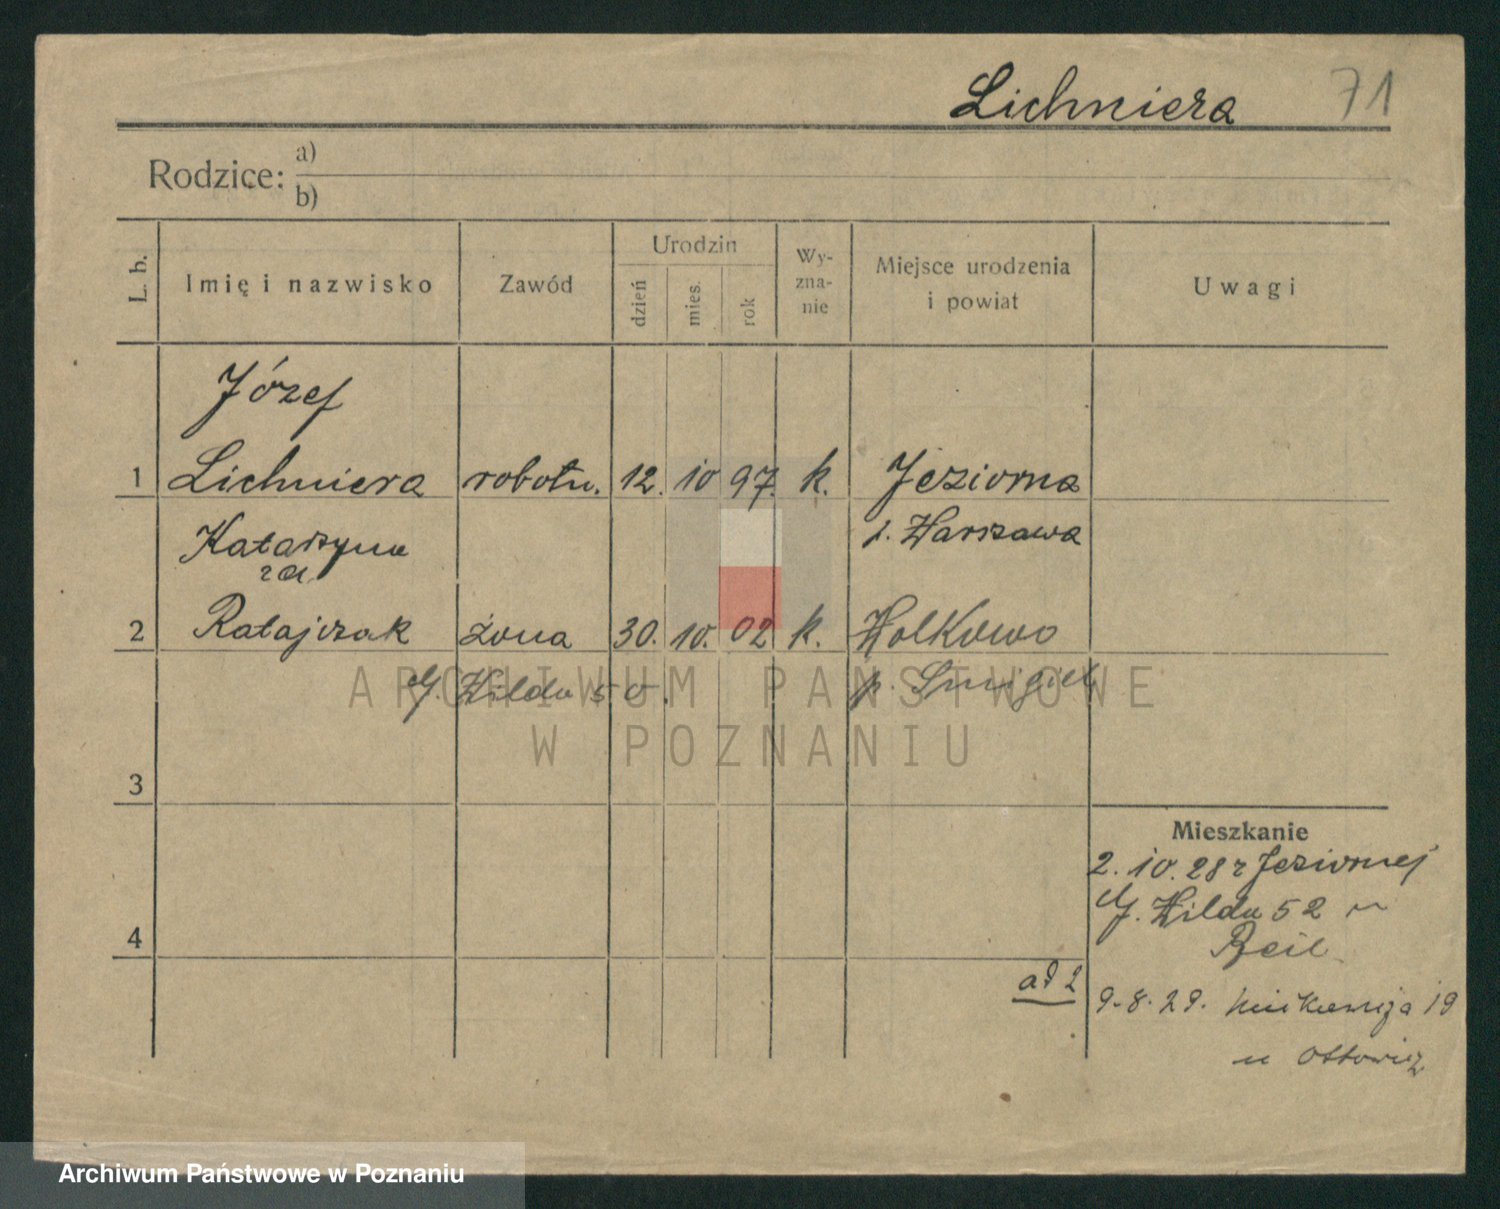 Lichniera 71
Rodzice: a)
b)
L. b. Imię i nazwisko Zawód Urodzin dzień mies. rok Wy-zna-nie Miejsce urodzenia i powiat Uwagi
Józef
1 Lichniera robotn. 12. 10 97. k. Jeziorna
Katarzyna p. Warszawa
za
2 Ratajczak żona 30. 10. 02 k. Wolkowo
G. Wilda 50. p. Smigiel
ARCHIWUM PAŃSTWOWE
W POZNANIU
3
Mieszkanie
2. 10. 28 z Jeziornej
G. Wilda 52 u
4
Beil
ad 2 9. 8. 29. 19
u
Archiwum Państwowe w Poznaniu